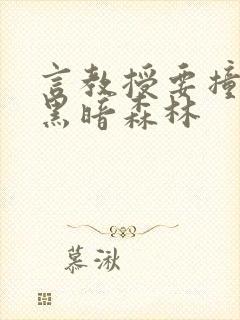 言教授要撞
黑暗森林
慕湫